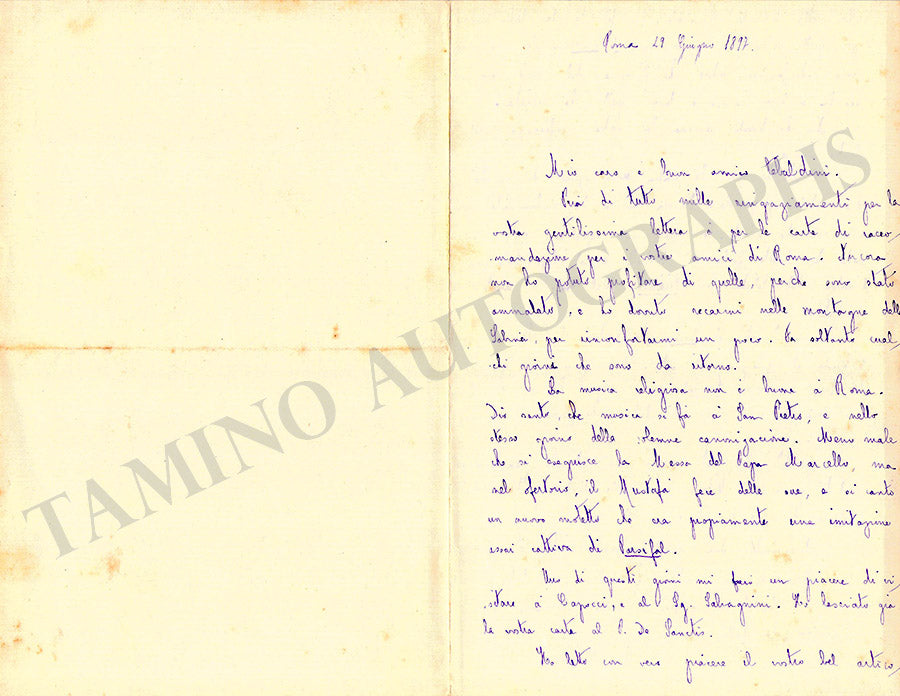 Roma 29 Giugno 1897.
Mio caro e buon amico Tebaldini.
Pria di tutto mille ringraziamenti per la
vostra gentilissima lettera è per le carte di racco-
mandazione per i vostri amici di Roma. Ancora
non ho potuto profitare di quelle, perche sono stato
ammalato, e ho dovuto recarmi nelle montagne della
Sabina, per rinconfortarmi un poco. Fa soltanto qual-
chi giorni che sono da ritorno.
La musica religiosa non è buona à Roma.
Dio santo, che musica si fà à San Pietro, e nello
stesso giorno della solemne canonizacione. Meno male
che si eseguisce la Messa del Papa Marcello, ma
nel ofertorio, il Mustafà fece delle sue, e si cantò
un nuovo motetto che era propiamente una imitazione
assai cattiva di Parsifal.
Uno di questi giorni mi farò un piacere di vi-
sitare à Capocci, e al Sg. Salvagnini. Ho lasciato già
la vostra carte al P. De Sanctis.
Ho letto con vero piacere il vostro bel artico-
TAMINO AUTOGRAPHS